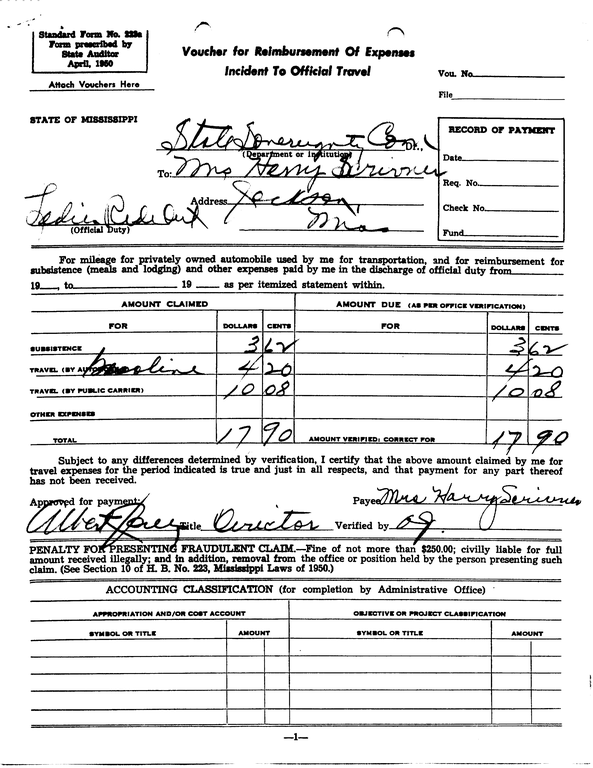 Standard Form No. 223a
Form prescribed by
State Auditor
April, 1950
Attach Vouchers Here
Voucher for Reimbursement Of Expenses
Incident To Official Travel
Vou. No.
File
STATE OF MISSISSIPPI
State Sovereignty Com. Dr.,
(Department or Institution)
To: Mrs Harry Scrivner
Address Jackson,
Miss
(Official Duty)
RECORD OF PAYMENT
Date
Req. No.
Check No.
Fund
For mileage for privately owned automobile used by me for transportation, and for reimbursement for
subsistence (meals and lodging) and other expenses paid by me in the discharge of official duty from
19___, to 19___ as per itemized statement within.
AMOUNT CLAIMED AMOUNT DUE (AS PER OFFICE VERIFICATION)
FOR DOLLARS CENTS FOR DOLLARS CENTS
SUBSISTENCE 3 62 3 62
TRAVEL (BY AUTO Gasoline 4 20 4 20
TRAVEL (BY PUBLIC CARRIER) 10 08 10 08
OTHER EXPENSES
TOTAL 17 90 AMOUNT VERIFIED: CORRECT FOR 17 90
Subject to any differences determined by verification, I certify that the above amount claimed by me for
travel expenses for the period indicated is true and just in all respects, and that payment for any part thereof
has not been received.
Approved for payment: Payee Mrs Harry Scrivner
Albert Jones Title Director Verified by OJ.
PENALTY FOR PRESENTING FRAUDULENT CLAIM.—Fine of not more than $250.00; civilly liable for full
amount received illegally; and in addition, removal from the office or position held by the person presenting such
claim. (See Section 10 of H. B. No. 223, Mississippi Laws of 1950.)
ACCOUNTING CLASSIFICATION (for completion by Administrative Office)
APPROPRIATION AND/OR COST ACCOUNT OBJECTIVE OR PROJECT CLASSIFICATION
SYMBOL OR TITLE AMOUNT SYMBOL OR TITLE AMOUNT
—1—